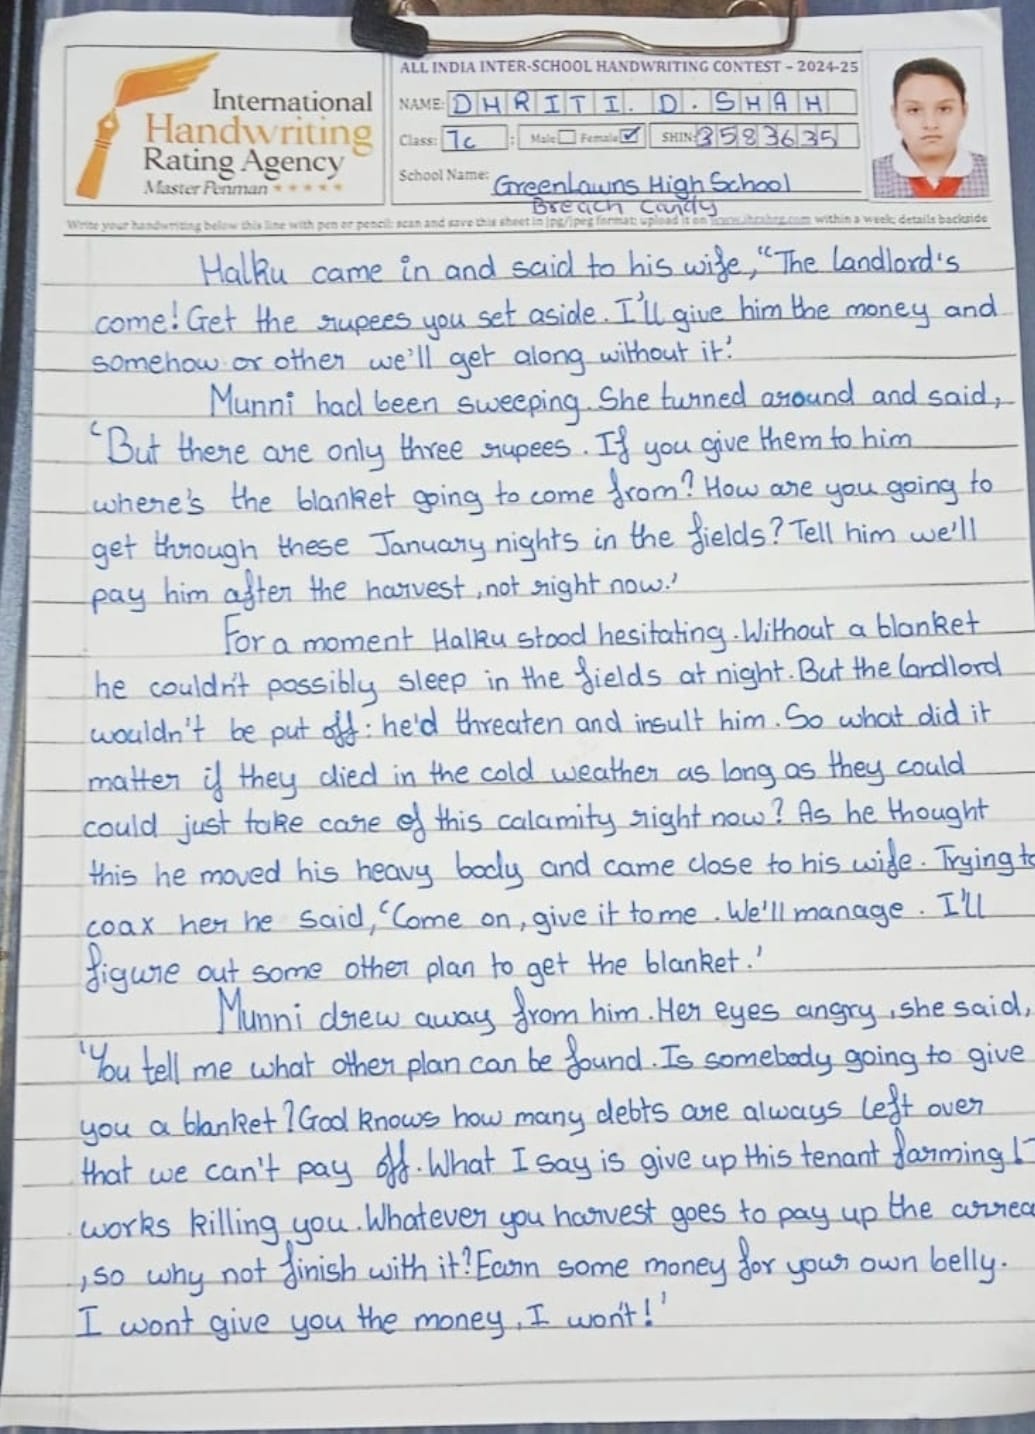 ALL INDIA INTER-SCHOOL HANDWRITING CONTEST – 2024-25
International
Handwriting
Rating Agency
Master Penman
NAME: DHRITI. D. SHAH
Class: 7c : Male Female ✓ SHIN: 3583635
School Name: Greenlawns High School
Breach Candy
Write your handwriting below this line with pen or pencil; scan and save this sheet in jpg/jpeg format; upload it on within a week; details backside
Halku came in and said to his wife, "The landlord's
come! Get the rupees you set aside. I'll give him the money and
somehow or other we'll get along without it.'
Munni had been sweeping. She turned around and said,
'But there are only three rupees. If you give them to him
where's the blanket going to come from? How are you going to
get through these January nights in the fields? Tell him we'll
pay him after the harvest, not right now.'
For a moment Halku stood hesitating. Without a blanket
he couldn't possibly sleep in the fields at night. But the landlord
wouldn't be put off: he'd threaten and insult him. So what did it
matter if they died in the cold weather as long as they could
could just take care of this calamity right now? As he thought
this he moved his heavy body and came close to his wife. Trying to
coax her he said, 'Come on, give it to me. We'll manage. I'll
figure out some other plan to get the blanket.'
Munni drew away from him. Her eyes angry, she said,
'You tell me what other plan can be found. Is somebody going to give
you a blanket? God knows how many debts are always left over
that we can't pay off. What I say is give up this tenant farming!
works killing you. Whatever you harvest goes to pay up the arrea
, so why not finish with it? Earn some money for your own belly.
I wont give you the money, I won't!'